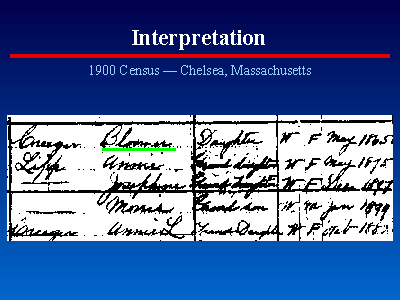 Interpretation
1900 Census — Chelsea, Massachusetts
Creeger Daughter W F May 1865
Lipp Annie Grand daughter W F May 1875
Josephine Grand daughter W F Dec 1897
Morris Grand son W M Jan 1899
Creeger Annie L Grand Daughter W F Feb